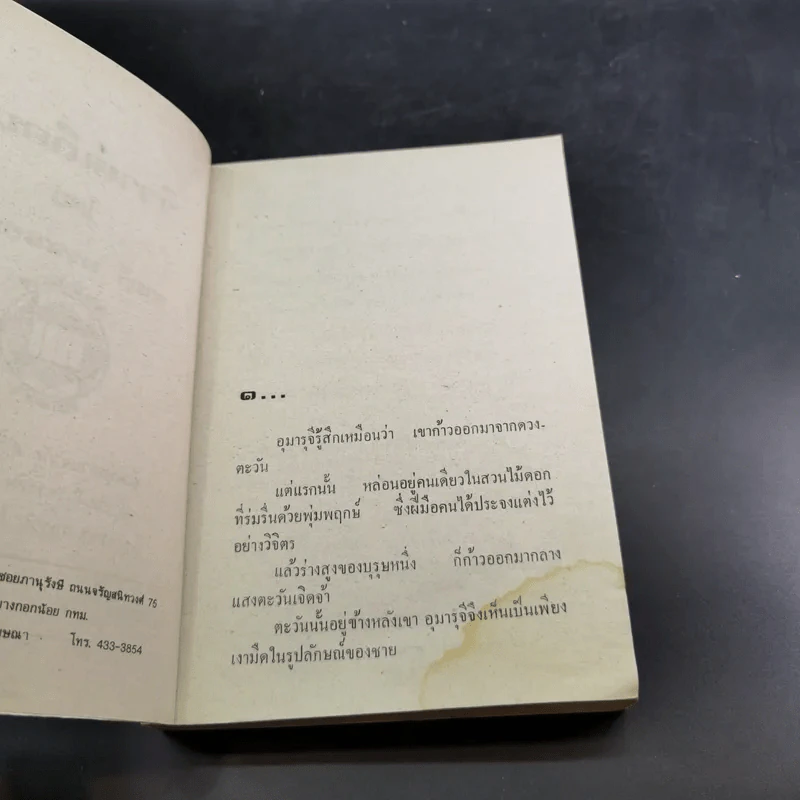 ซอยภาณุรังษี ถนนจรัญสนิทวงศ์ 75
บางกอกน้อย กทม.
โทร. 433-3854
๑...
อุมารุจีรู้สึกเหมือนว่า เขาก้าวออกมาจากดวง-
ตะวัน
แต่แรกนั้น หล่อนอยู่คนเดียวในสวนไม้ดอก
ที่ร่มรื่นด้วยพุ่มพฤกษ์ ซึ่งฝีมือคนได้ประจงแต่งไว้
อย่างวิจิตร
แล้วร่างสูงของบุรุษหนึ่ง ก็ก้าวออกมากลาง
แสงตะวันเจิดจ้า
ตะวันนั้นอยู่ข้างหลังเขา อุมารุจีจึงเห็นเป็นเพียง
เงามืดในรูปลักษณ์ของชาย